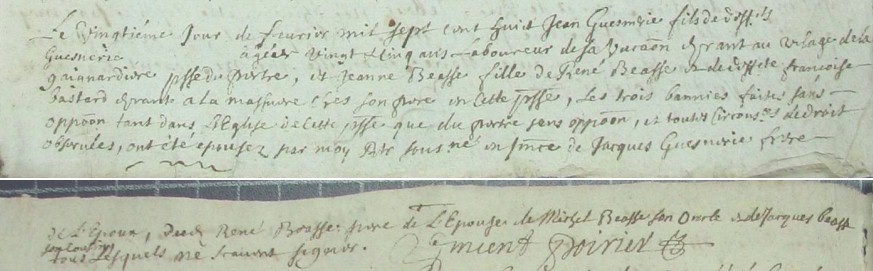 Le Vingtiéme Jour de fevrier mil sept cent huit Jean Guesnerie fils de deff.
Guesnerie âgé de vingt et cinq ans Laboureur de sa vacaon dt au vilage de la
gaignardiere psse du pertre, et Jeanne Beasse fille de René Beasse et de deffte francoise
bastard dte a la masure chés son pere en cette psse, les trois bannies faites sans
oppoon tant dans l'Eglise de cette psse que du pertre sans oppoon, et toutes Circons.s de droit
observées, ont été epousez par moy Ptre sous né en psnce de Jacques Guesnerie frere
de L'Epoux, dud. René Beasse pere de L'Epouse de Michel Beasse son Oncle et de Jacques beasse
son cousin
tous Lesquels ne scavent signer. Poirier